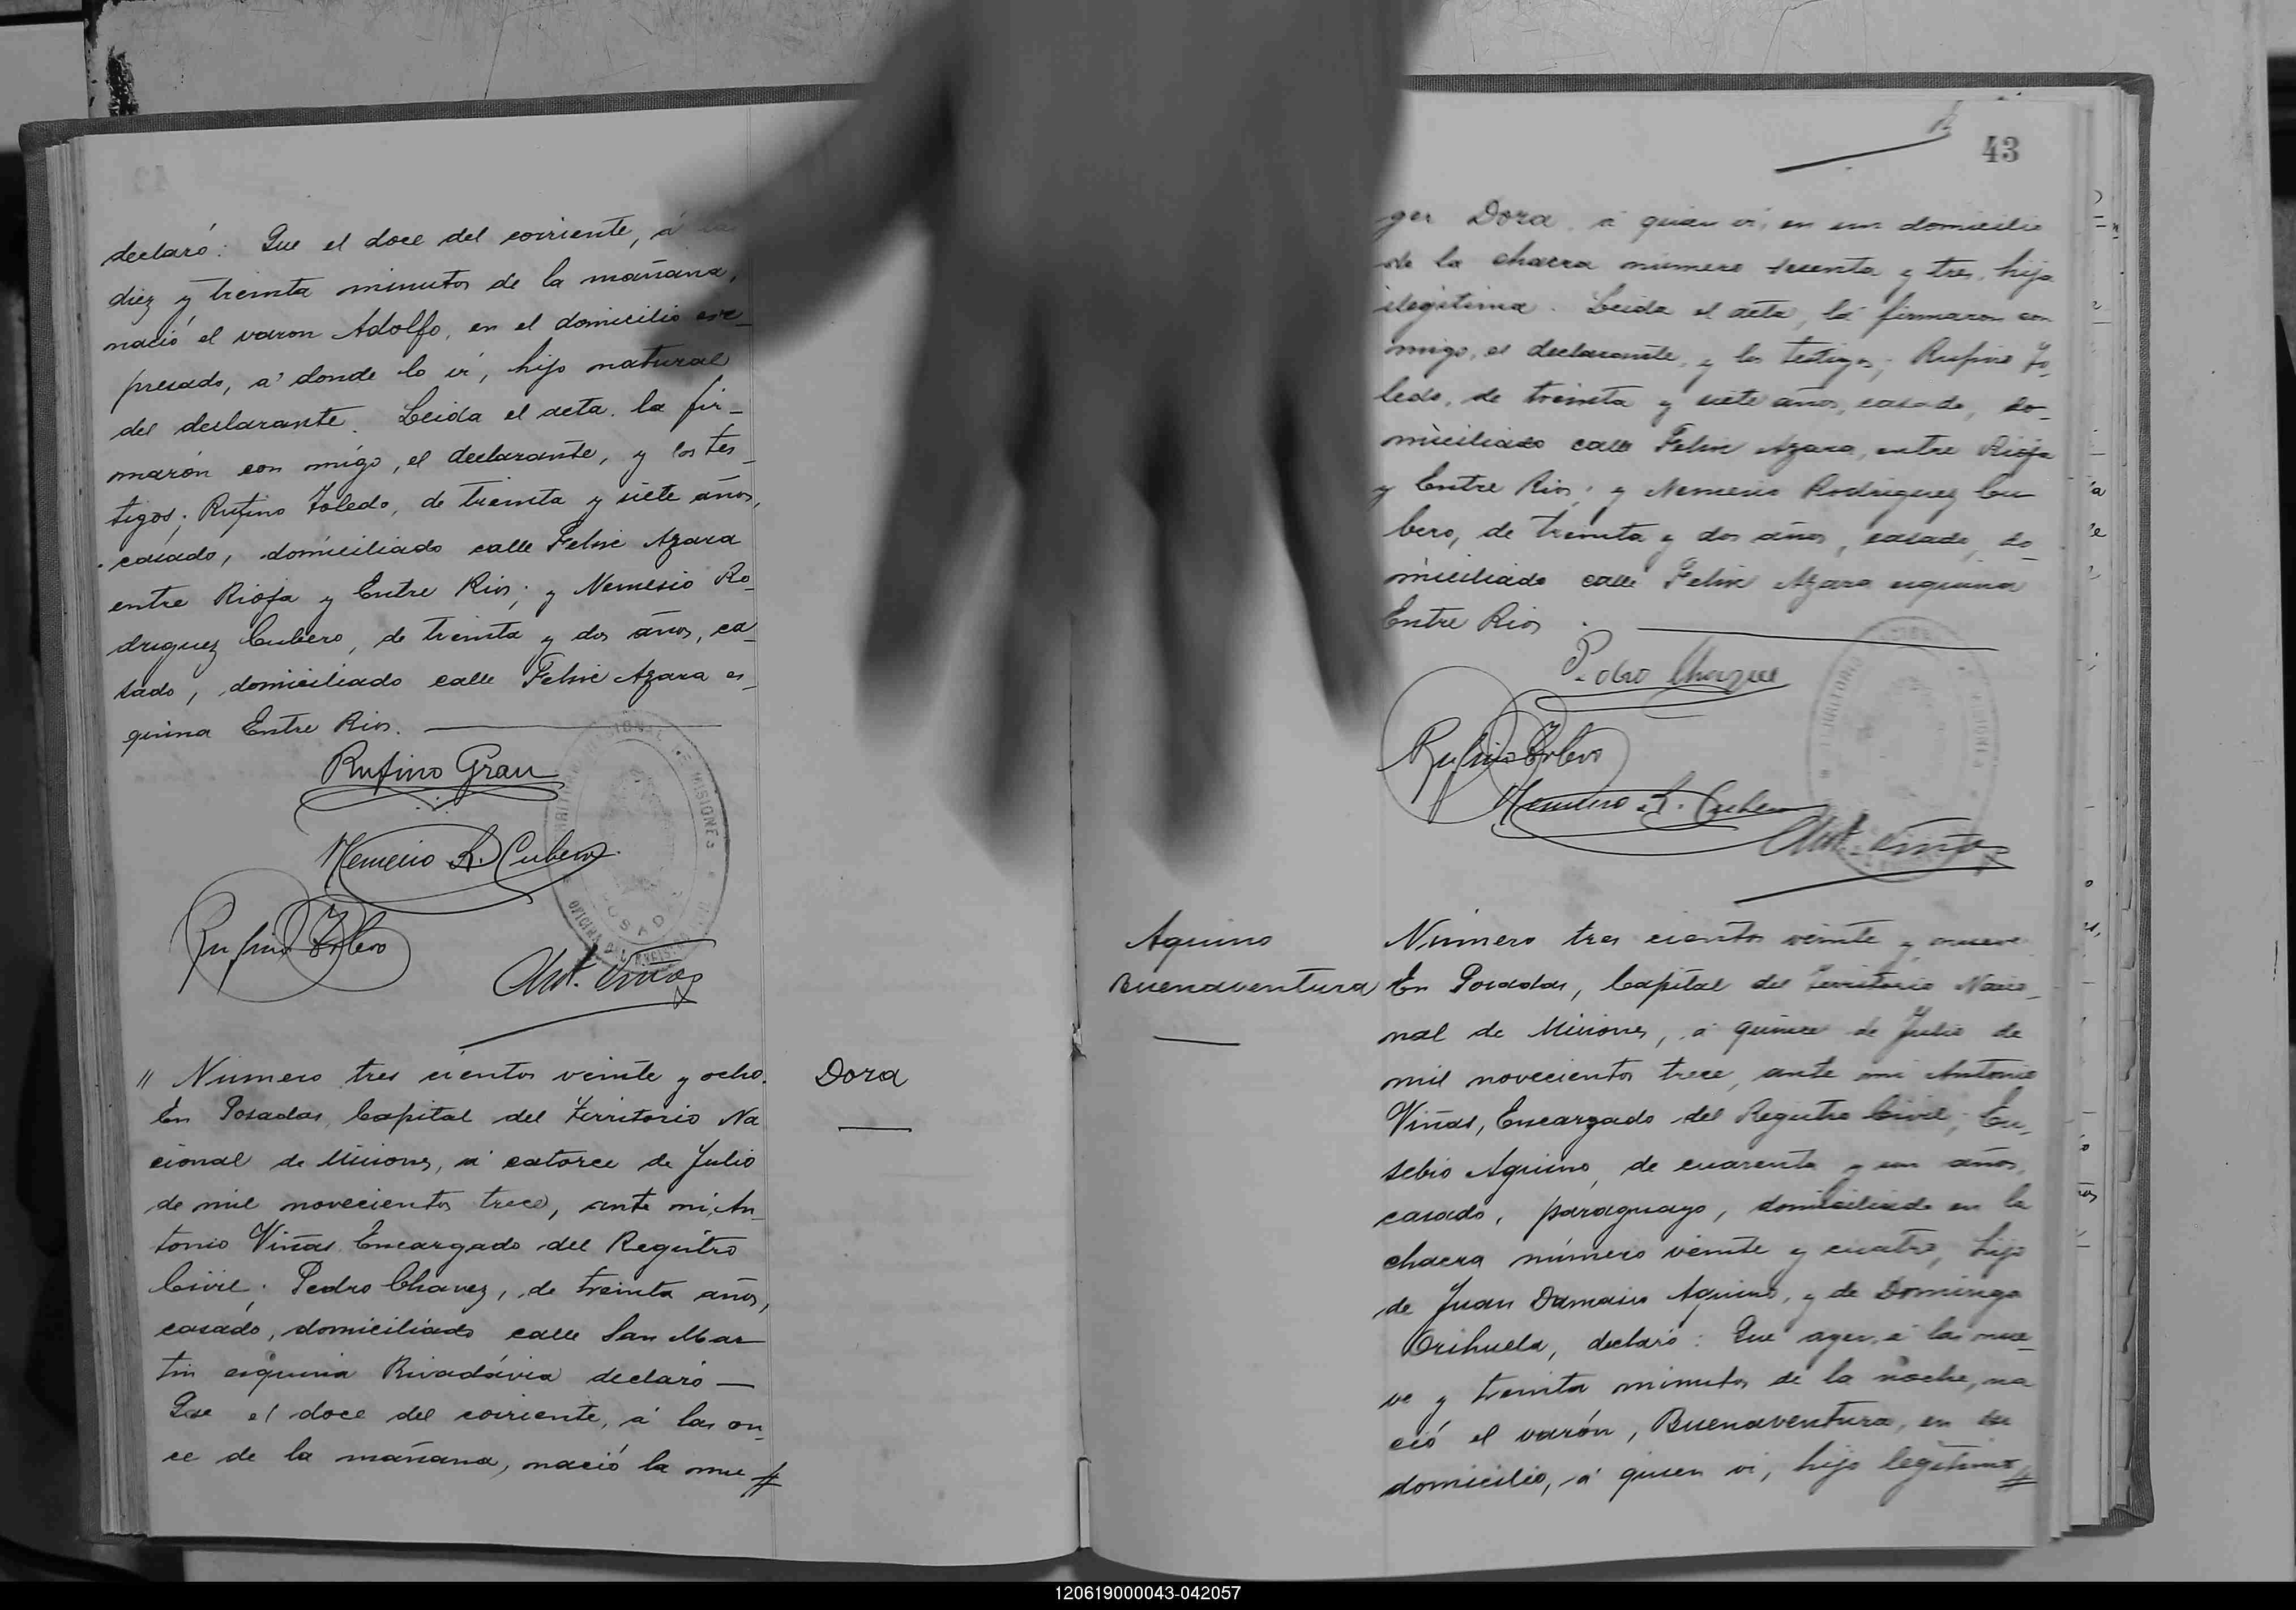 declaró: Que el doce del corriente, á las
diez y treinta minutos de la mañana,
nació el varon Adolfo, en el domicilio ex-
presado, a' donde lo ví, hijo natural
del declarante. Leida el acta. la fir-
marón con migo, el declarante, y los tes-
tigos; Rufino Toledo, de treinta y siete años,
casado, domiciliado calle Felix Azara
entre Rioja y Entre Rios; y Nemesio Ro-
driguez Cubero, de treinta y dos años, ca-
sado, domiciliado calle Felix Azara es-
quina Entre Rios.
Rufino Grau
Nemesio R. Cubero
Rufino Toledo
Ant. Viñas
MISIONES
" Numero tres cientos veinte y ocho.
En Posadas, Capital del Territorio Na
cional de Misiones, á catorce de Julio
de mil novecientos trece, ante mi, An-
tonio Viñas, Encargado del Registro
Civil; Pedro Chavez, de treinta años,
casado, domiciliado calle San Mar
tin esquina Rivadávia declaró —
Que el doce del corriente, á las on-
ce de la mañana, nació la mu
Dora
43
ger Dora, á quien ví, en su domicilio
de la chacra número treenta y tres, hija
ilegitima. Leida el acta, la firmaron con
migo, el declarante, y los testigos; Rufino To-
ledo, de treinta y siete años, casado, do-
miciliado calle Felix Azara, entre Rioja
y Entre Rios; y Nemesio Rodriguez Cu
bero, de treinta y dos años, casado, do-
miciliado calle Felix Azara esquina
Entre Rios
Pedro Chavez
Rufino Toledo
Nemesio R. Cubero
Ant. Viñas
Aquino
Buenaventura
Número tres cientos veinte y nueve
En Posadas, Capital del Territorio Nacio-
nal de Misiones, á quince de Julio de
mil novecientos trece, ante mi Antonio
Viñas, Encargado del Registro Civil; Eu-
sebio Aquino, de cuarenta y un años,
casado, paraguayo, domiciliado en la
chacra número veinte y cuatro, hijo
de Juan Damasio Aquino, y de Dominga
Orihuela, declaró: Que ayer, á las nue-
ve y treinta minutos de la noche, na
ció el varón, Buenaventura, en su
domicilio, á quien ví, hijo legitimo
120619000043-042057